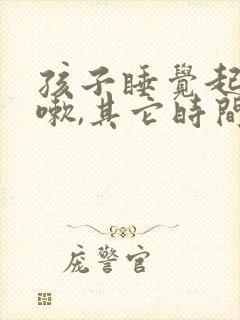 孩子睡覺起
嗽,其它時間
庞警官